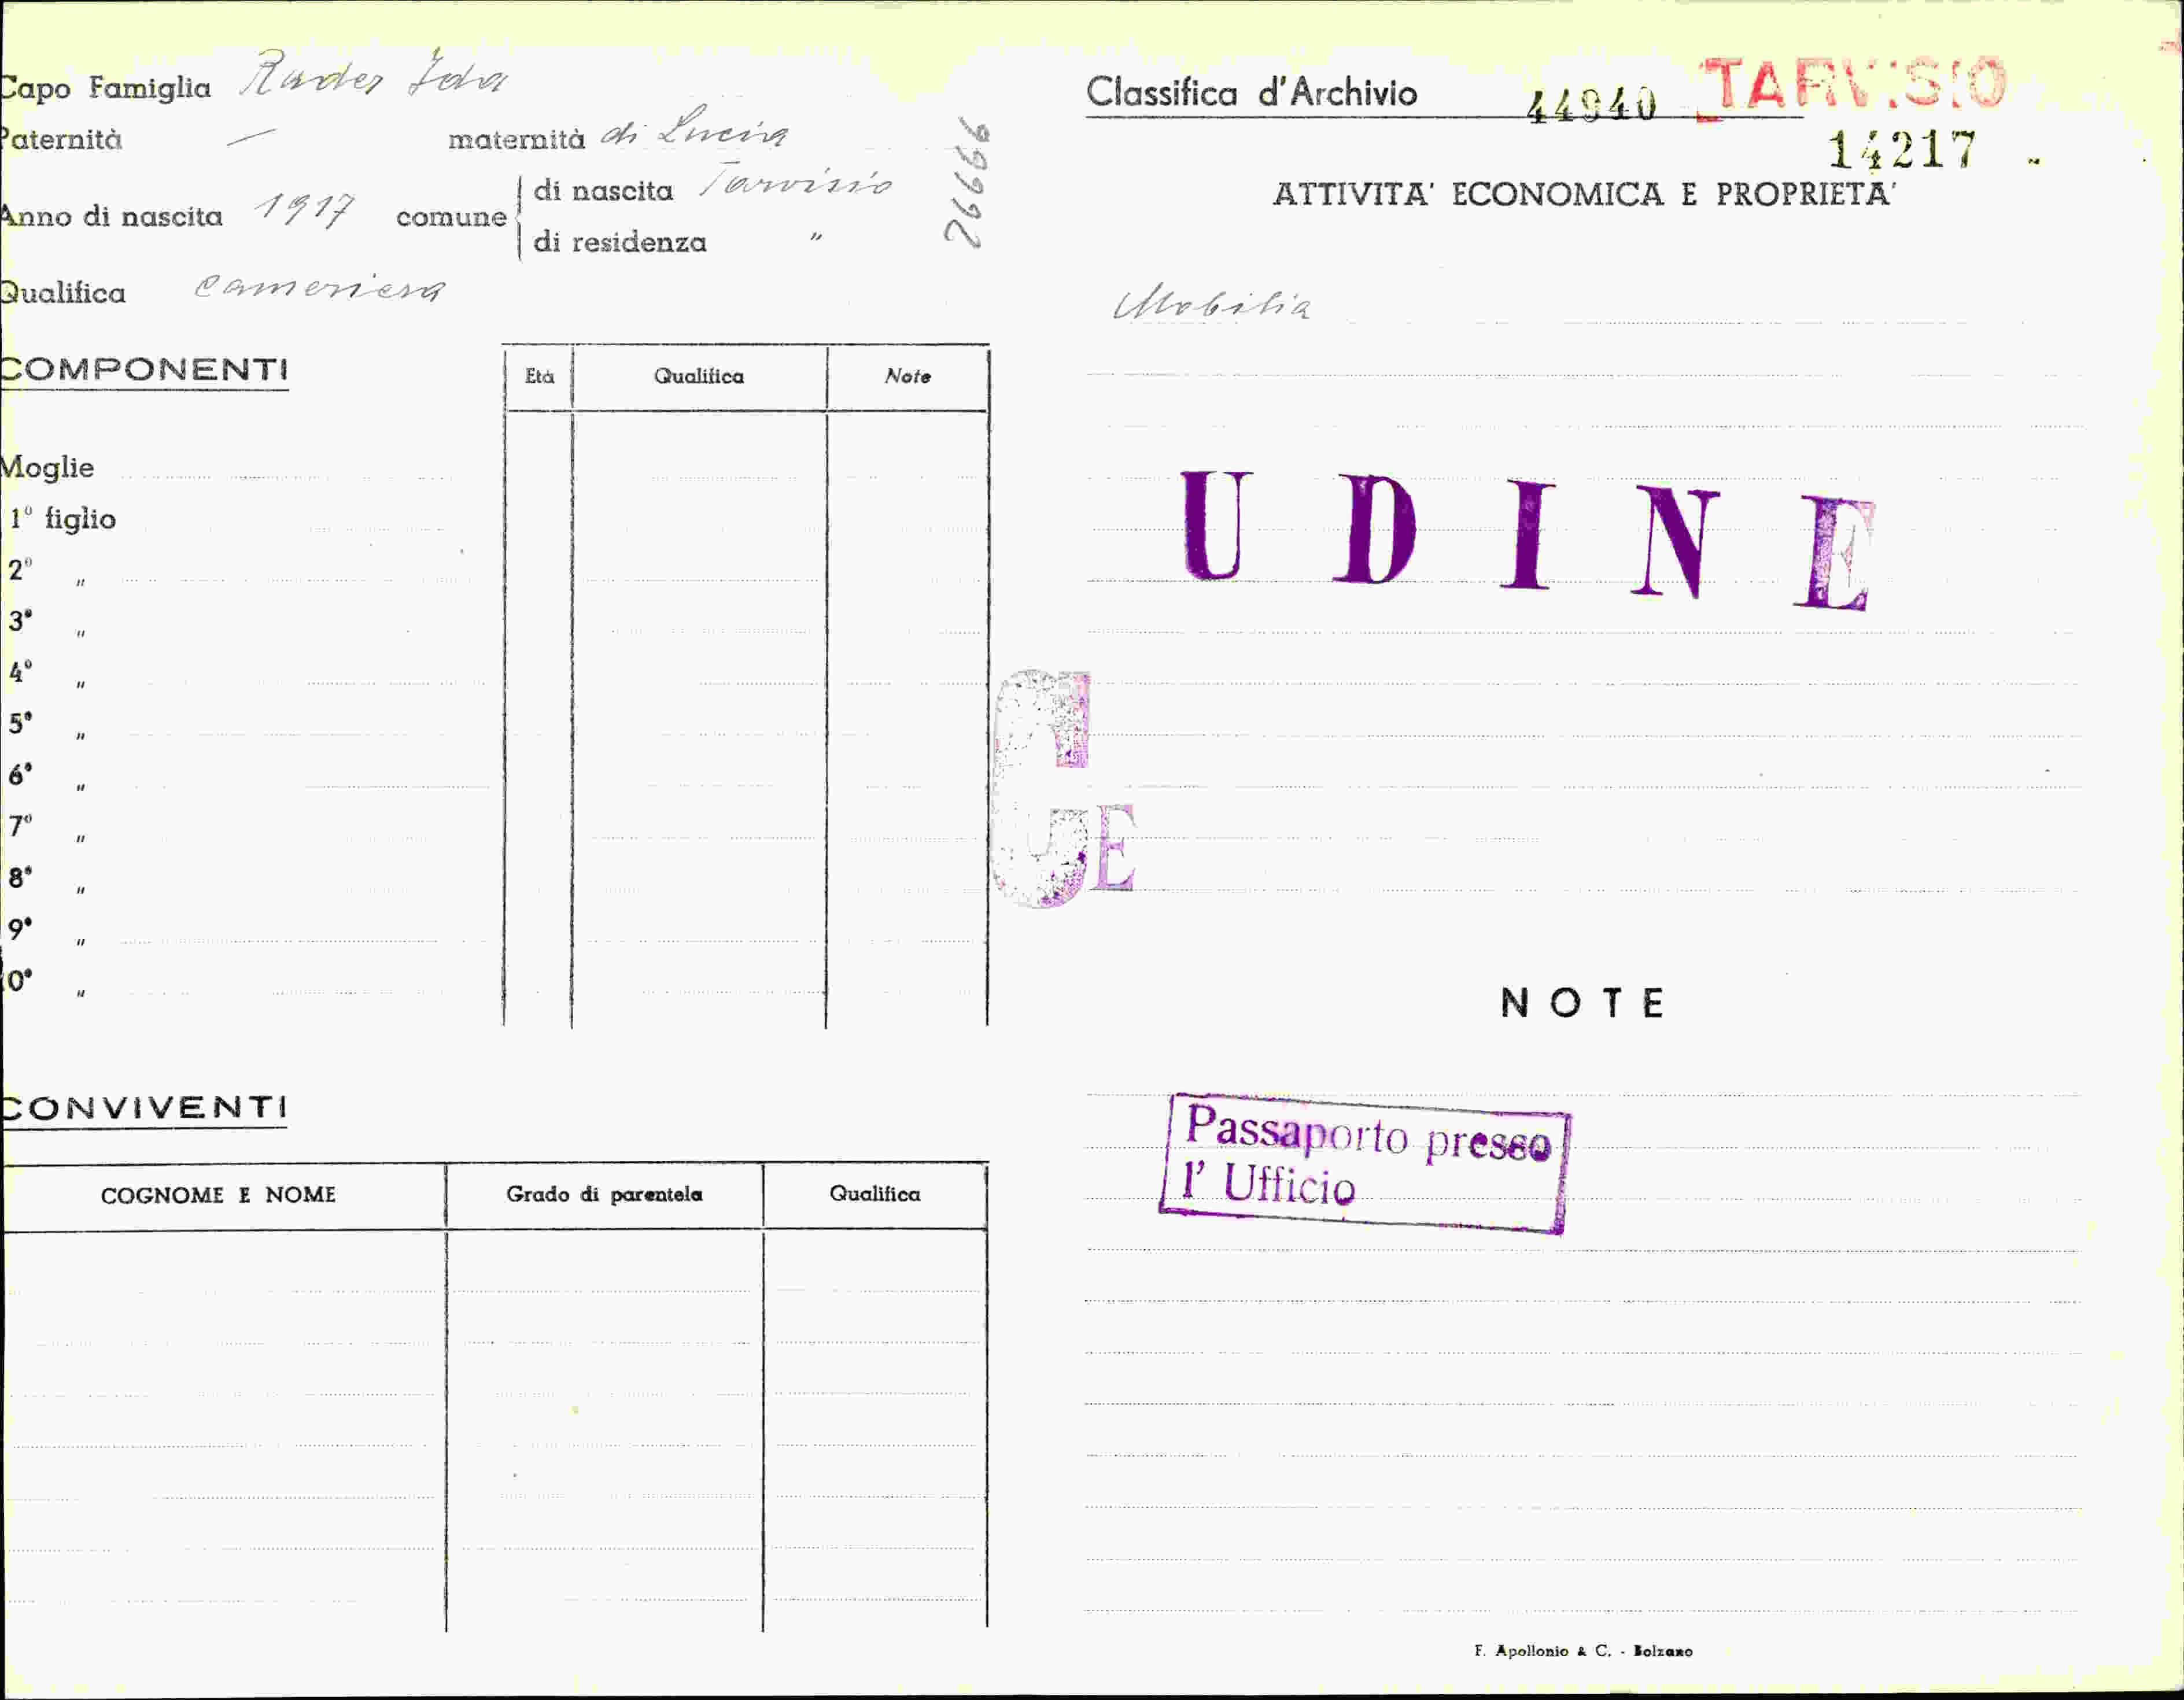 Capo Famiglia Rader Ida
Paternità — maternità di Lucia
Anno di nascita 1917 comune di nascita Tarvisio
di residenza "
Qualifica cameriera
26666
COMPONENTI
Età Qualifica Note
Moglie
1° figlio
2° "
3° "
4° "
5° "
6° "
7° "
8° "
9° "
10° "
CONVIVENTI
COGNOME E NOME Grado di parentela Qualifica
Classifica d'Archivio 44940 TARVISIO
14217
ATTIVITA' ECONOMICA E PROPRIETA'
Mobilia
UDINE
G
GE
NOTE
Passaporto presso
l' Ufficio
F. Apollonio & C. - Bolzano